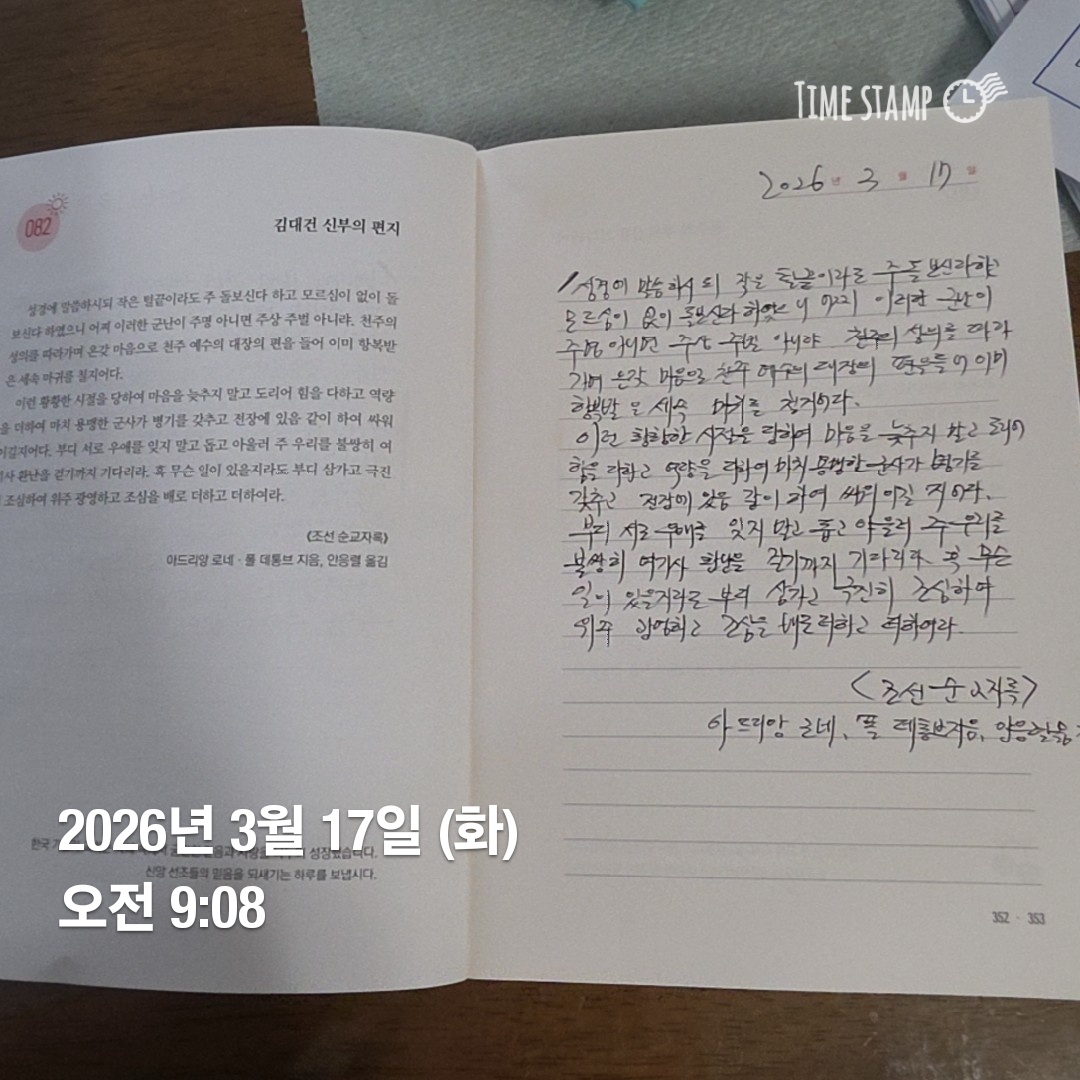 TIME STAMP
082
김대건 신부의 편지
성경에 말씀하시되 작은 털끝이라도 주 돌보신다 하고 모르심이 없이 돌
보신다 하였으니 어찌 이러한 군난이 주명 아니면 주상 주벌 아니랴. 천주의
성의를 따라가며 온갖 마음으로 천주 예수의 대장의 편을 들어 이미 항복받
은 세속 마귀를 칠지어다.
이런 황황한 시절을 당하여 마음을 늦추지 말고 도리어 힘을 다하고 역량
을 더하여 마치 용맹한 군사가 병기를 갖추고 전장에 있음 같이 하여 싸워
이길지어다. 부디 서로 우애를 잊지 말고 돕고 아울러 주 우리를 불쌍히 여
환난을 걷기까지 기다리라. 혹 무슨 일이 있을지라도 부디 삼가고 극진
조심하여 위주 광영하고 조심을 배로 더하고 더하여라.
《조선 순교자록》
아드리앙 로네·폴 데통브 지음, 안응렬 옮김
한국
성장했습니다.
신앙 선조들의 믿음을 되새기는 하루를 보냅시다.
2026년 3월 17일
성경에 말씀하시되 작은 털끝이라도 주 돌보신다하고
모르심이 없이 돌보신다 하였으니 어찌 이러한 군난이
주명 아니면 주상 주벌 아니랴 천주의 성의를 따라
가며 온갖 마음으로 천주 예수의 대장의 편을들어 이미
항복받은 세속 마귀를 칠지어다.
이런 황황한 시절을 당하여 마음을 늦추지 말고 도리어
힘을 다하고 역량을 더하여 마치 용맹한 군사가 병기를
갖추고 전장에 있음 같이 하여 싸워 이길 지어다.
부디 서로 우애를 잊지 말고 돕고 아울러 주 우리를
불쌍히 여기사 환난을 걷기까지 기다리라 혹 무슨
일이 있을지라도 부디 삼가고 극진히 조심하여
위주 광영하고 조심을 배로 더하고 더하여라.
<조선 순교자록>
아드리앙 로네, 폴 데통브지음, 안응렬옮김
352 · 353
2026년 3월 17일 (화)
오전 9:08